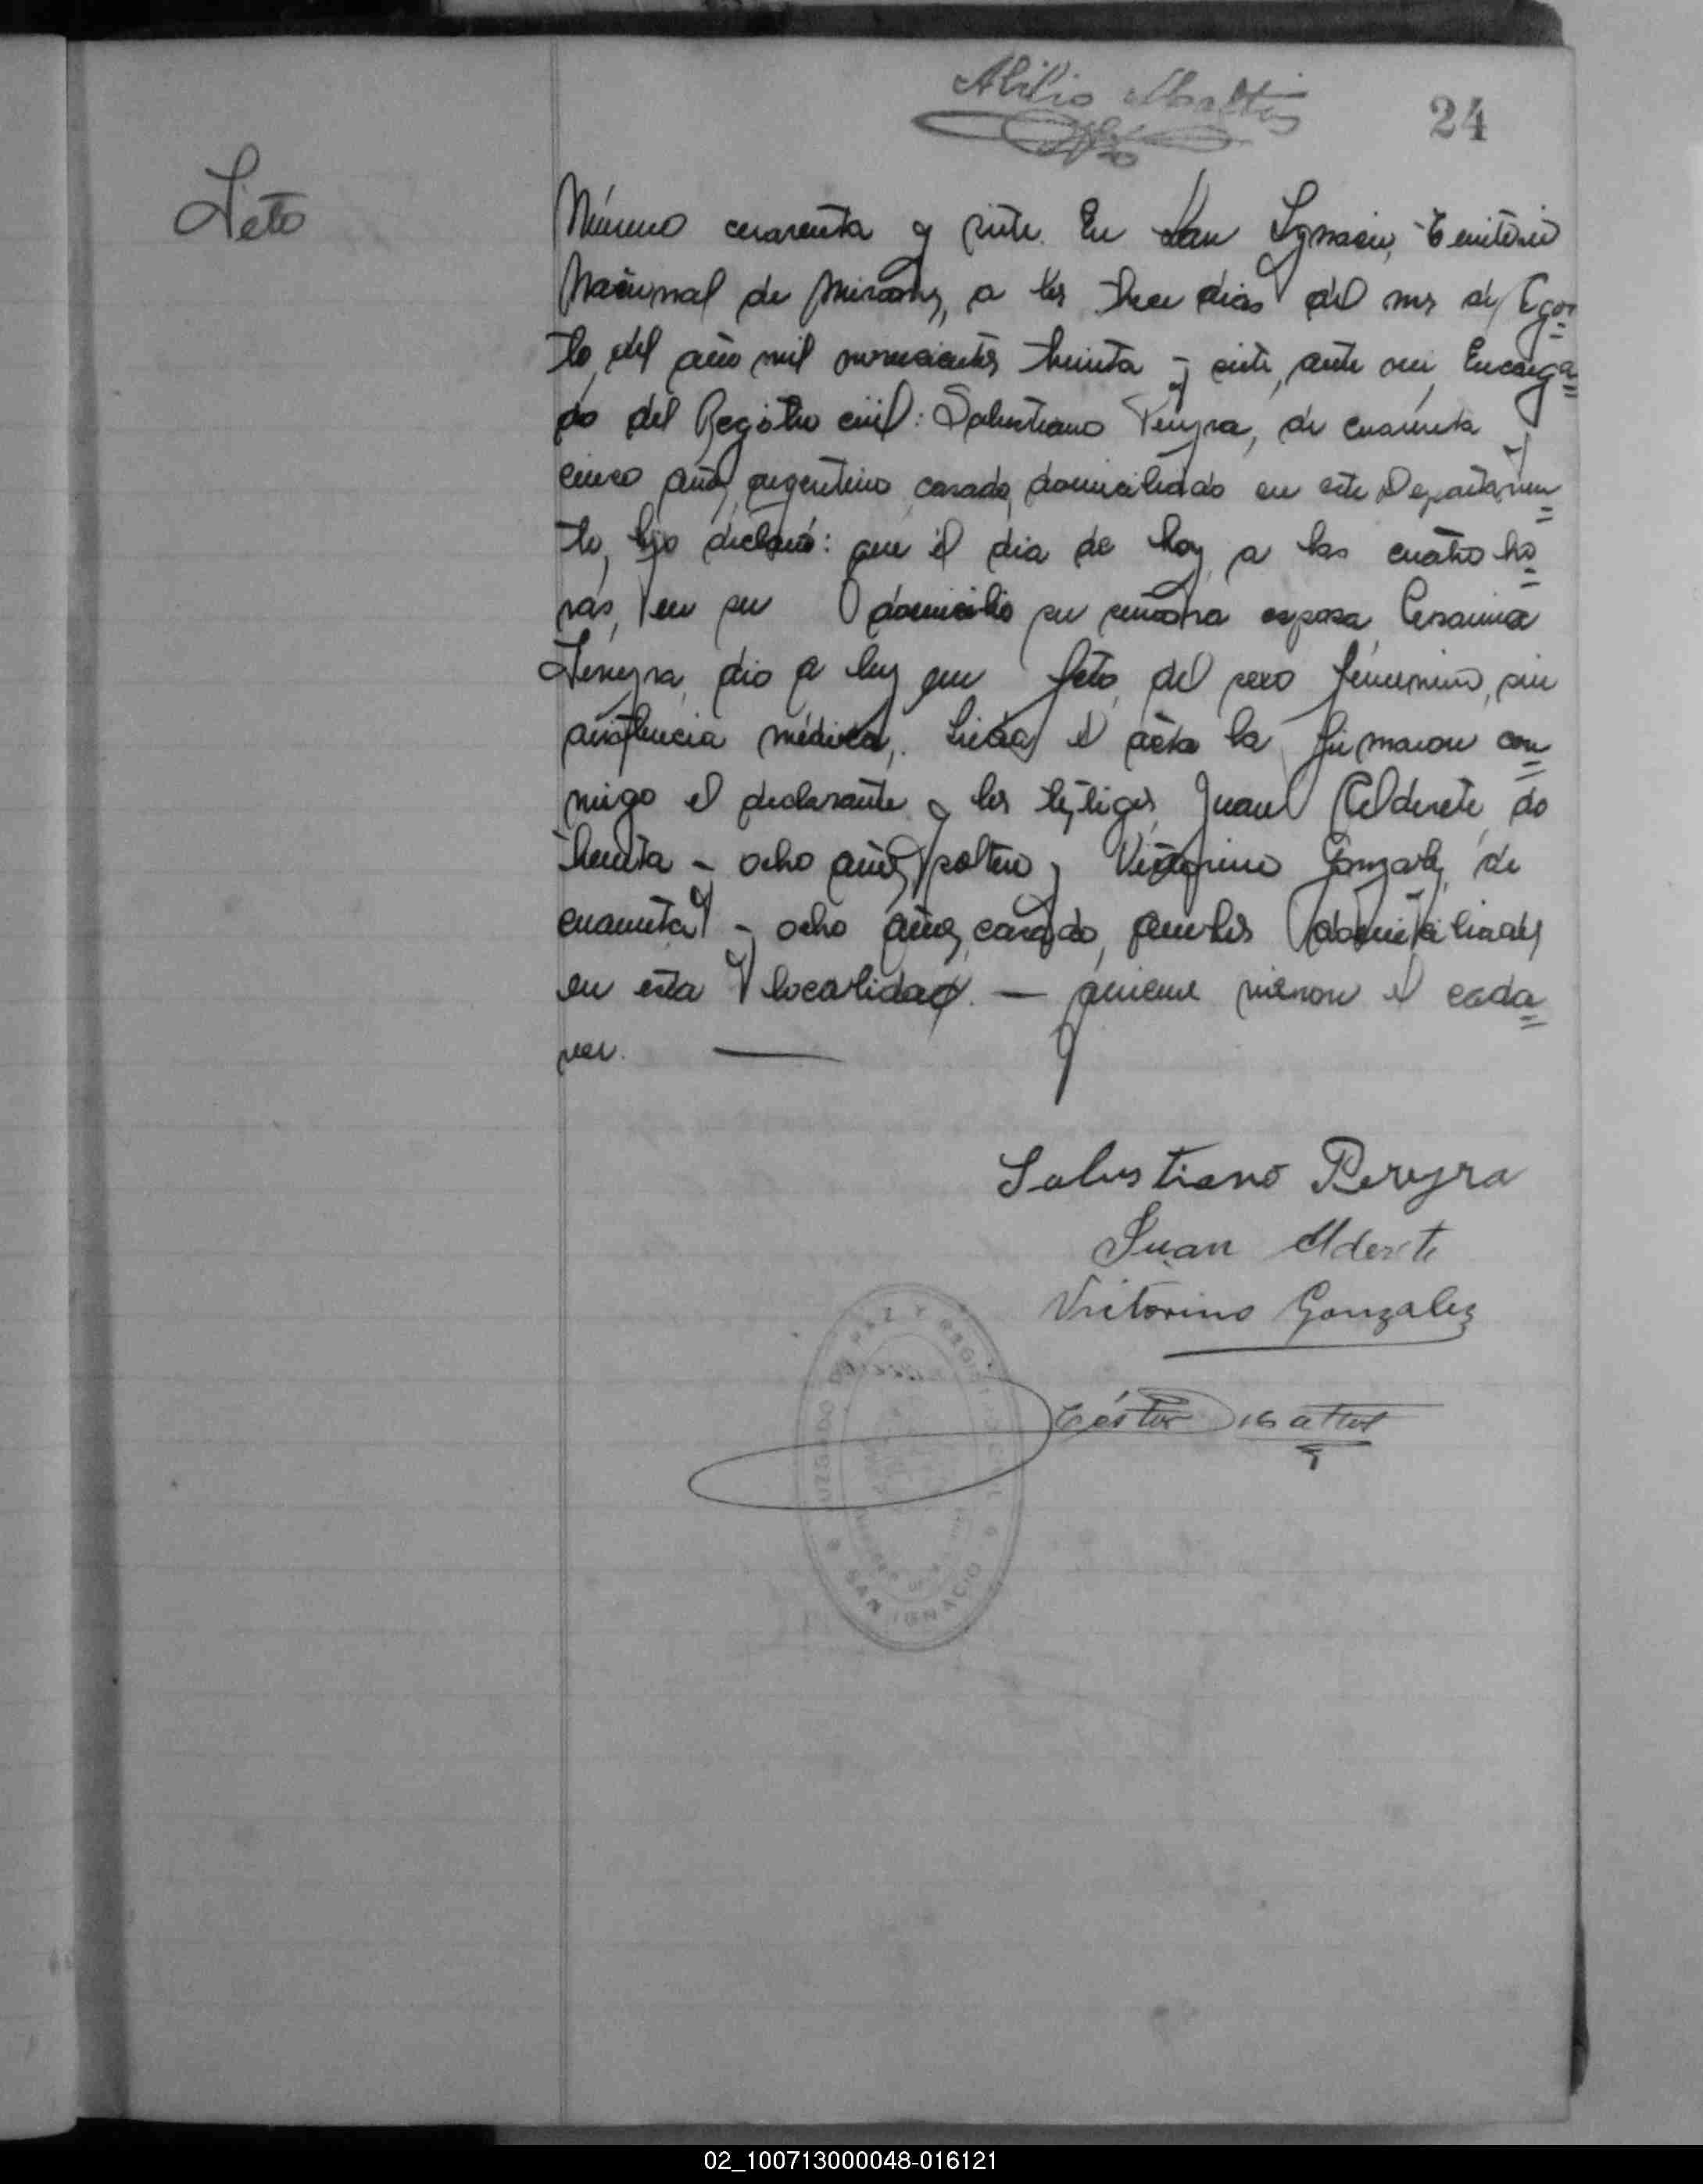 Abilio
24
Feto
Número cuarenta y siete. En San Ignacio, Territorio
Nacional de Misiones, a los trece dias del mes de Agos=
to, del año mil novecientos treinta y siete, ante mi, Encarga=
do del Registro civil: Salustiano Pereyra, de cuarenta y
cinco años, argentino, casado, domiciliado en este Departamen=
to, declaró: que el dia de hoy, a las cuatro ho=
ras, en su domicilio su señora esposa
dio a luz un feto, del sexo femenino, sin
asistencia médica. Leida el acta la firmaron con=
migo el declarante y los testigos, Juan Alderete, de
treinta y ocho años, soltero y Victorino Gonzalez, de
cuarenta y ocho años, casado, ambos domiciliados
en esta localidad. — quienes vieron el cada=
ver. —
Salustiano Pereyra
Juan Alderete
Victorino Gonzalez
JUZGADO DE PAZ Y REGISTRO CIVIL
SAN IGNACIO
02_100713000048-016121